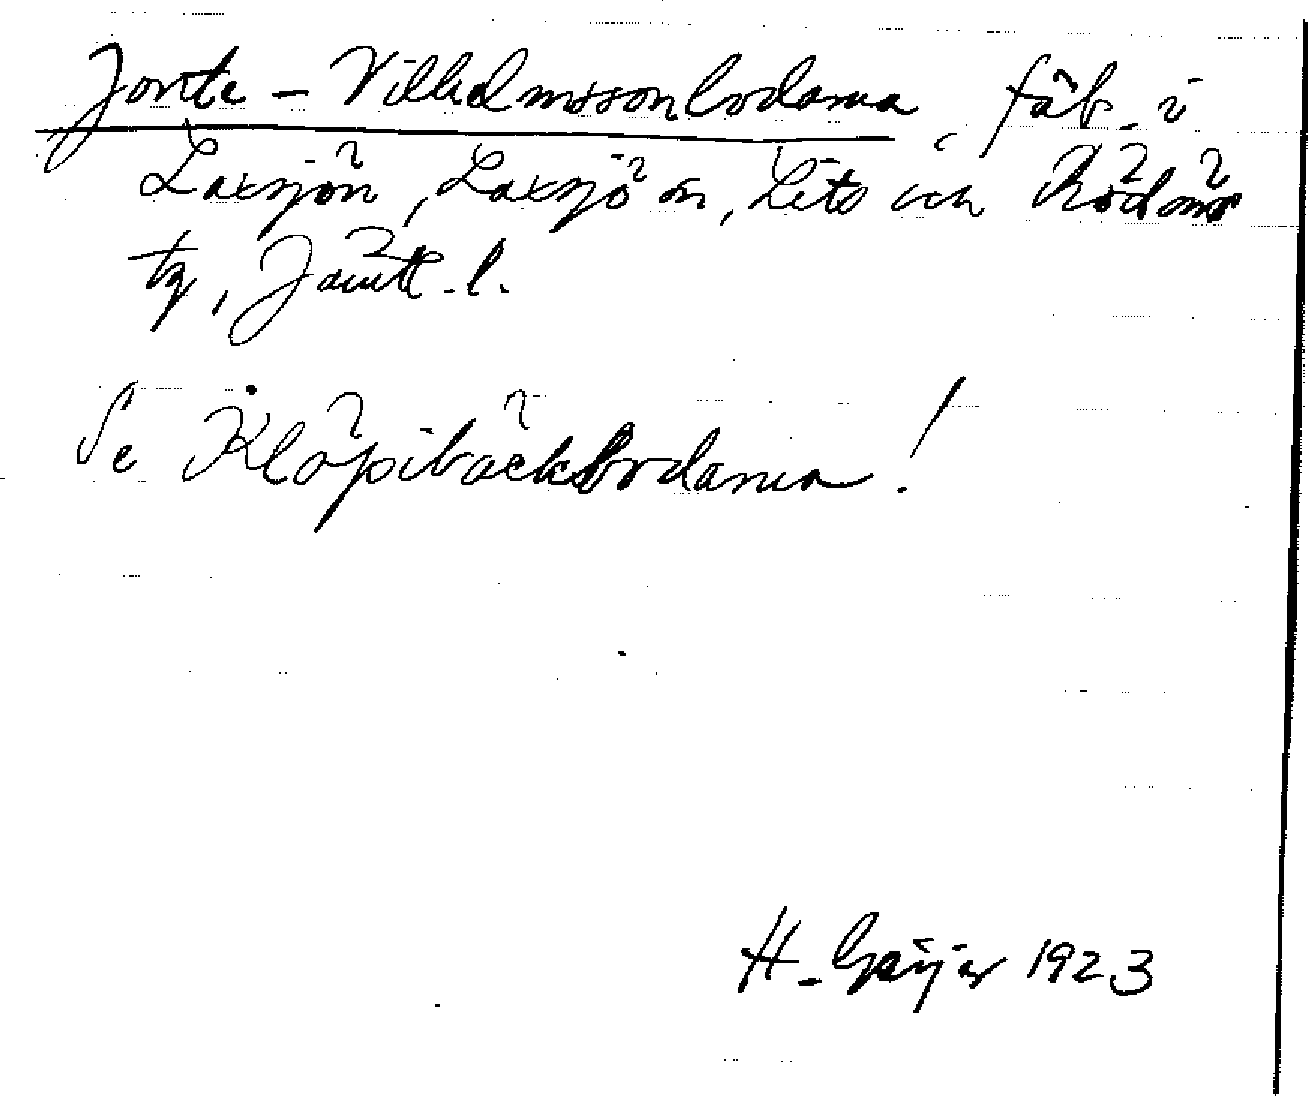 Jonte-Vilhelmssonbodarna, fäb. i
Laxsjön, Laxsjö sn, Lits och Rödöns
tg, Jämtl. l.
Se Klöpibäcksbodarna!
H. Geijer 1923